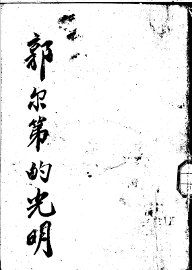 郭尔第的光明